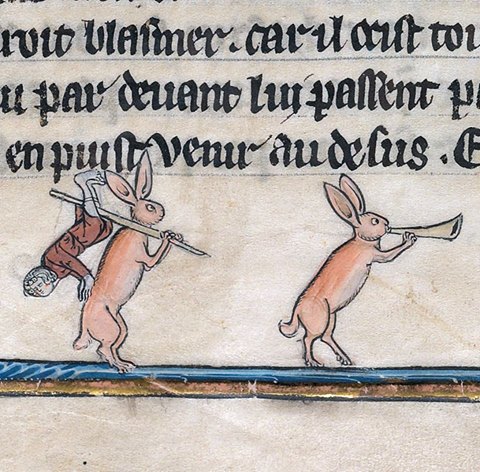 blasmer . car il ocist
u par deuant lui passent
en puist venir au desus . E